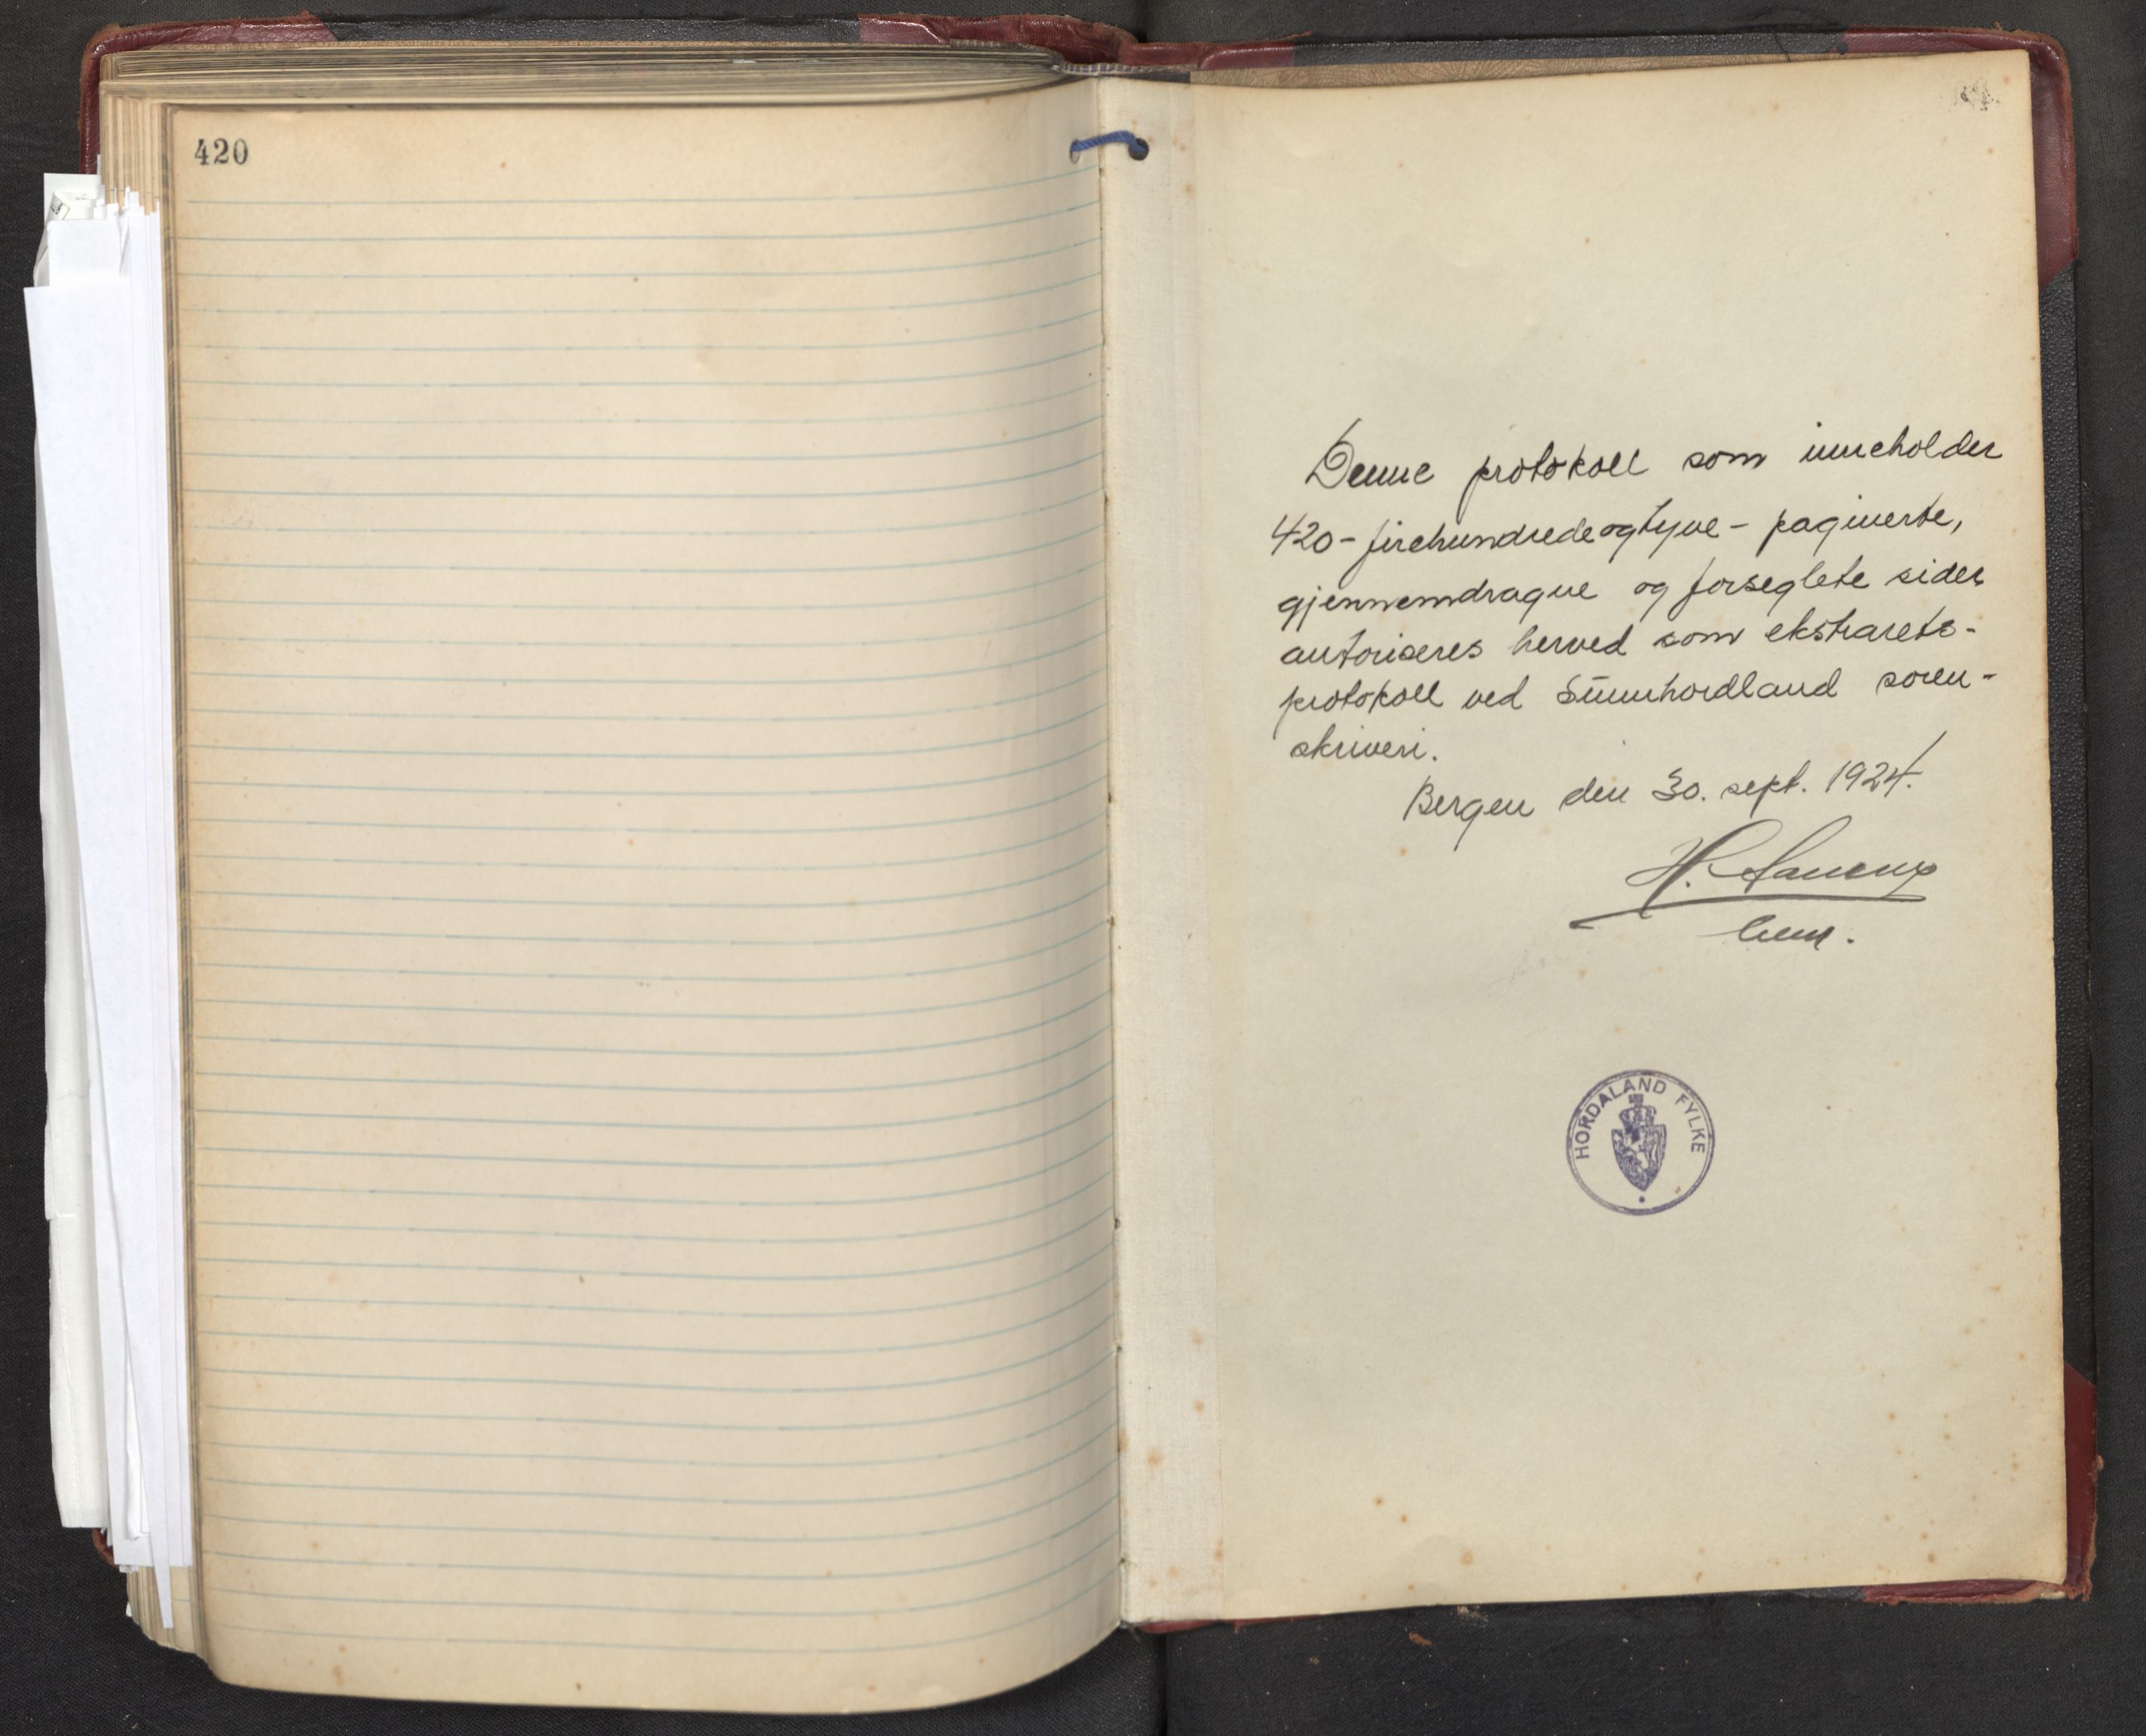 420
Denne protokoll som inneholder
420 - firehundredeogtyve - paginerte,
gjennemdragne og forseglete sider
autoriseres herved som ekstrarets-
protokoll ved Sunnhordland soren-
skriveri.
Bergen den 30. sept. 1924.
H.
HORDALAND FYLKE